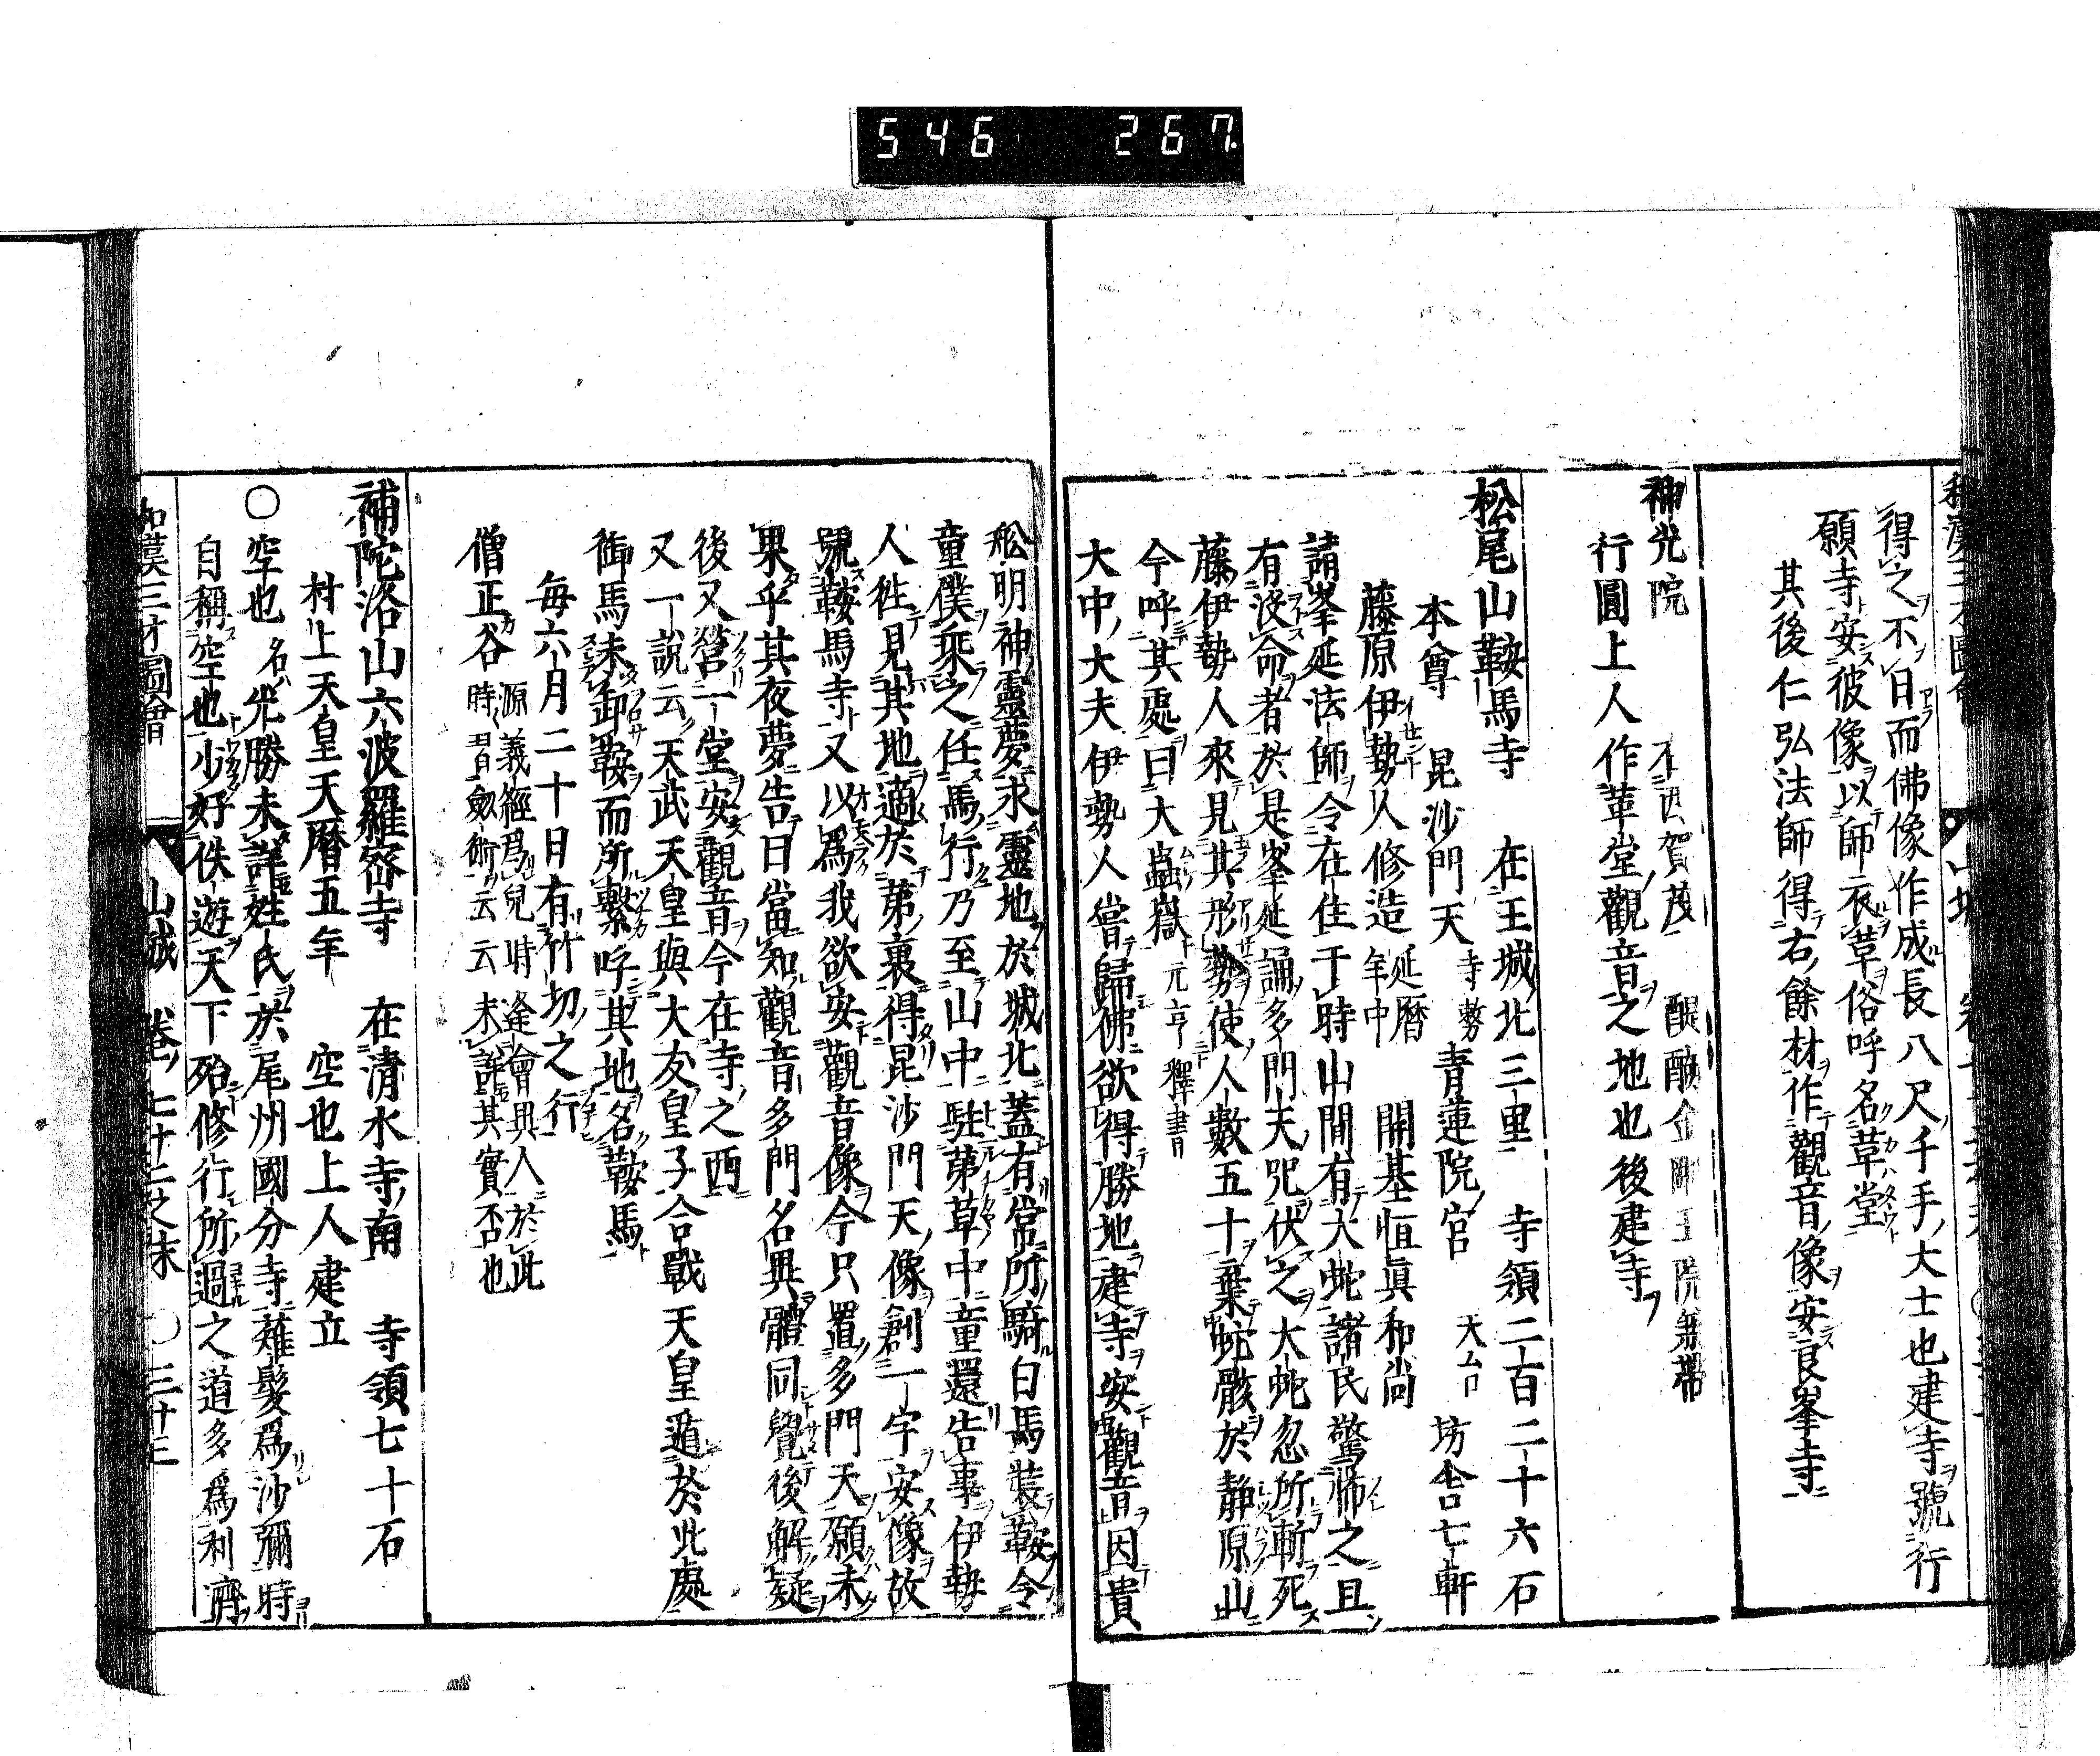 546 267
得之不日而佛像作成長八尺千手大士也建寺號行
願寺安彼像以師衣革俗呼名革堂
其後仁弘法師得右餘材作觀音像安良峯寺
神光院 在西賀茂 醍醐金剛王院兼帶
行圓上人作革堂觀音之地也後建寺
松尾山鞍馬寺 在王城北三里 寺領二百二十六石
本尊 毘沙門天 寺務 青蓮院宮 天台 坊舎七軒
藤原伊勢人修造 延曆年中 開基恒眞和尚
請峯延法師令在住于時山間有大蛇諸民驚怖之且
有沒命者於是峯延誦多門天咒伏之大蛇忽所斬死
藤伊勢人來見其形勢使人數五十棄蛇骸於靜原山
今呼其處曰大蟲嶽 元亨釋書
大中大夫伊勢人嘗歸佛欲得勝地建寺安觀音因貴
舩明神靈夢求靈地於城北蓋有常所騎白馬裝鞍令
童僕乘之任馬行乃至山中駐茅草中童還告事伊勢
人徃見其地適於茅裏得毘沙門天像創一宇安像故
號鞍馬寺又以爲我欲安觀音像今只置多門天願未
果乎其夜夢告曰當知觀音多門名異體同覺後解疑
後又營一堂安觀音今在寺之西
又一說云天武天皇與大友皇子合戰天皇遁於此處
御馬未卸鞍而所繫呼其地名鞍馬
毎六月二十日有竹切之行
僧正谷 源義經爲兒時逢會異人於此時時習劔術云云未詳其實否也
補陀洛山六波羅密寺 在清水寺南 寺領七十石
村上天皇天曆五年 空也上人建立
○空也 名光勝未詳姓氏於尾州國分寺薙髮爲沙彌時
自稱空也少好佚遊天下殆修行所過之道多爲利濟
和漢三才圖會 山城 卷七十二之末 ○三十三